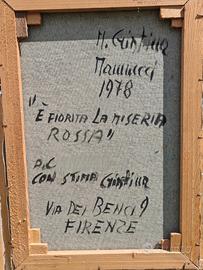 M. Cristina
Mannucci
1978
"È FIORITA LA MISERIA
ROSSA"
P.C
CON STIMA Cristina
VIA DEI BENCI 9
FIRENZE